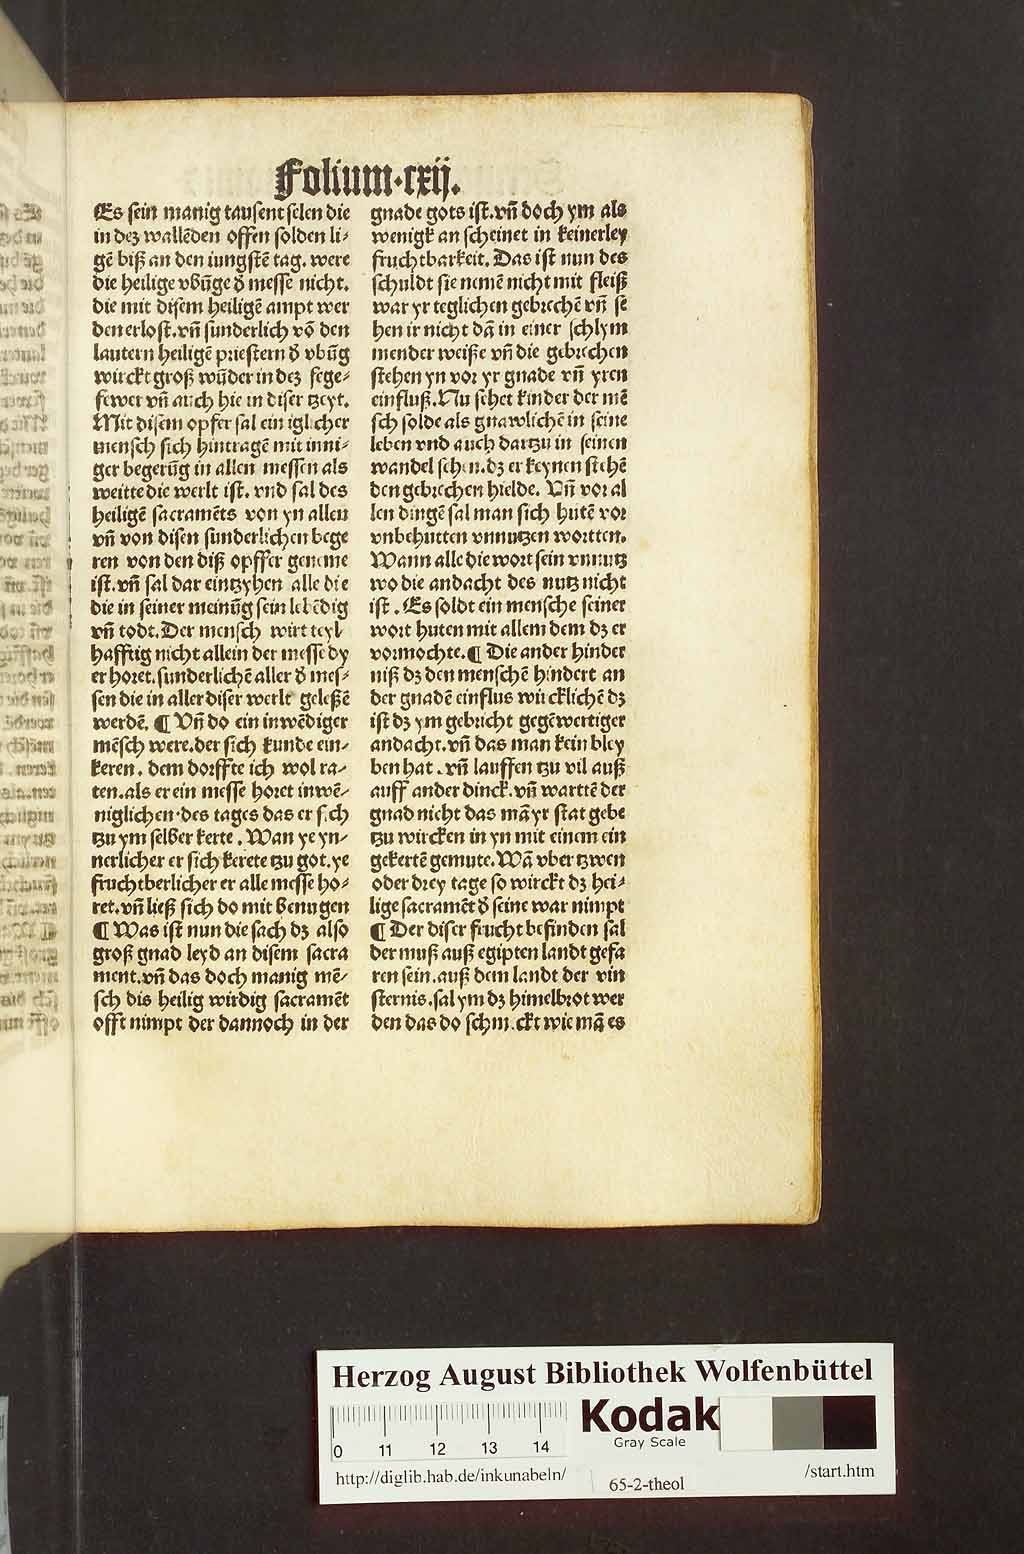 Folium·cxij.
Es sein manig tausent selen die
in dez wallēden offen solden li⸗
gē biß an den iungstē tag. were
die heilige vbūge d̕ messe nicht.
die mit disem heiligē ampt wer
den erlost. vn̄ sunderlich vō den
lautern heiligē priestern d̕ vbūg
wirckt groß wūder in dez fege⸗
fewer vn̄ auch hie in diser tzeyt.
Mit disem opfer sal ein iglicher
mensch sich hintragē mit inni⸗
ger begerūg in allen messen als
weitte die werlt ist. vnd sal des
heiligē sacramēts von yn allen
vn̄ von disen sunderlichen bege
ren von den diß opffer geneme
ist. vn̄ sal dar eintzyhen alle die
die in seiner meinūg sein lebēdig
vn̄ todt. Der mensch wirt teyl
hafftig nicht allein der messe dy
er horet. sunderlichē aller d̕ mes⸗
sen die in aller diser werlt geleßē
werdē. ¶ Vn̄ do ein inwēdiger
mēsch were. der sich kunde ein⸗
keren. dem dorffte ich wol ra⸗
ten. als er ein messe horet inwē⸗
niglichen·des tages das er sich
tzu ym selber kerte. Wan ye yn⸗
nerlicher er sich kerete tzu got. ye
fruchtberlicher er alle messe ho⸗
ret. vn̄ ließ sich do mit benugen
¶ Was ist nun die sach dz also
groß gnad leyd an disem sacra
ment. vn̄ das doch manig mē⸗
sch dis heilig wirdig sacramēt
offt nimpt der dannoch in der
gnade gots ist. vn̄ doch ym als
wenigk an scheinet in keinerley
fruchtbarkeit. Das ist nun des
schuldt sie nemē nicht mit fleiß
war yr teglichen gebrechē vn̄ se
hen ir nicht dā in einer schlym
mender weiße vn̄ die gebrechen
stehen yn vor yr gnade vn̄ yren
einfluß. Nu sehet kinder der mē
sch solde als gnawlichē in seine
leben vnd auch dartzu in seinen
wandel sehen. dz er keynen stehē
den gebrechen hielde. Vn̄ vor al
len dingē sal man sich hutē vor
vnbehutten vnnutzen wortten.
Wann alle die wort sein vnnutz
wo die andacht des nutz nicht
ist. Es soldt ein mensche seiner
wort huten mit allem dem dz er
vormochte. ¶ Die ander hinder
niß dz den menschē hindert an
der gnadē einflus wircklichē dz
ist dz ym gebricht gegēwertiger
andacht. vn̄ das man kein bley
ben hat. vn̄ lauffen tzu vil auß
auff ander dinck. vn̄ warttē der
gnad nicht das mā yr stat gebe
tzu wircken in yn mit einem ein
gekertē gemute. Wā vber tzwen
oder drey tage so wirckt dz hei⸗
lige sacramēt d̕ seine war nimpt
¶ Der diser frucht befinden sal
der muß auß egipten landt gefa
ren sein. auß dem landt der vin
sternis. sal ym dz himelbrot wer
den das do schmeckt wie mā es
Herzog August Bibliothek Wolfenbüttel
0 11 12 13 14
Kodak
Gray Scale
http://diglib.hab.de/inkunabeln/
65-2-theol
/start.htm